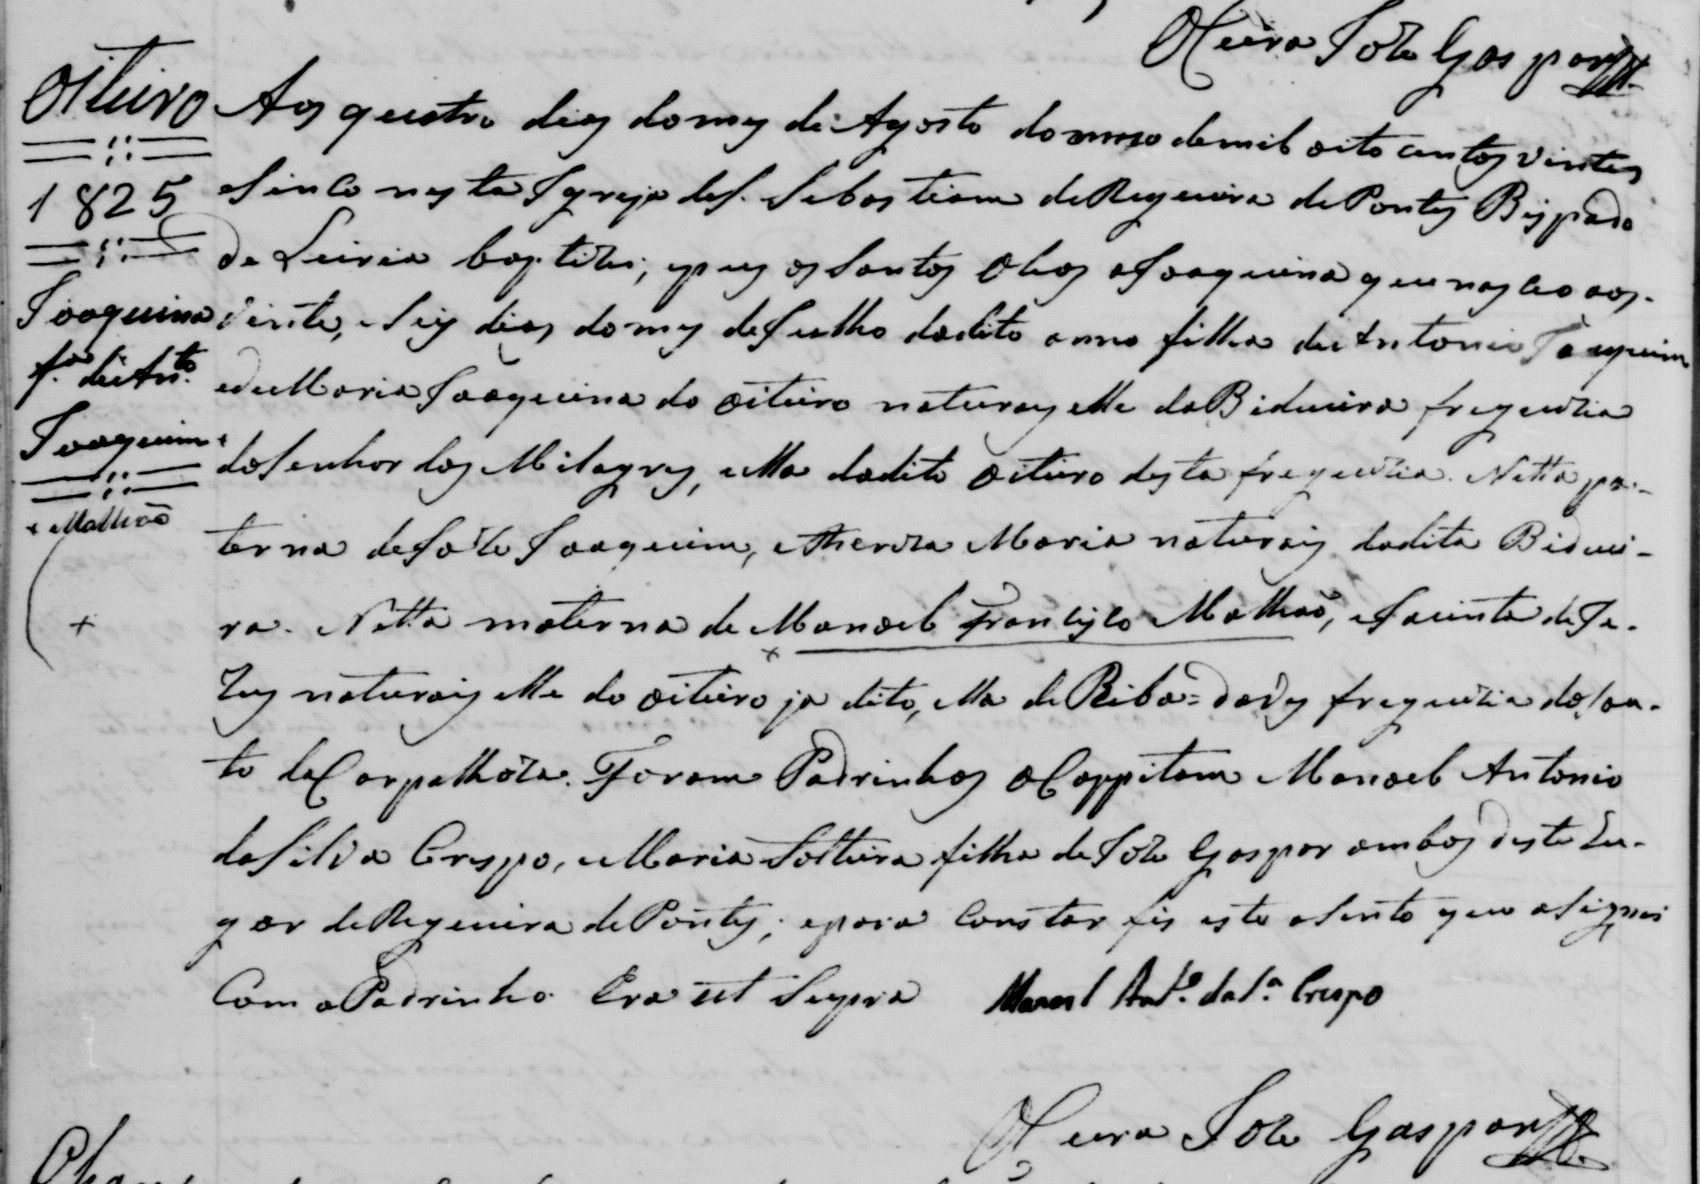 O Cura Joze Gaspar
Oiteiro
1825
Joaquina
f.a de An.to
Joaquim
+ Malhaõ
+
Aos quatro dias do mes de Agosto do anno de mil oito centos vinte
e sinco nesta Igreja de S. Sebastiam de Regueira de Pontes Bispado
de Leiria baptizei, e pus os Santos Oleos a Joaquina que nasceo aos
vinte, e seis dias do mes de Julho do dito anno filha de Antonio Joaquim
e de Maria Joaquina do Oiteiro naturaes elle da Bidueira freguezia
do Senhor dos Milagres, ella do dito Oiteiro desta freguezia. Netta pa-
terna de Joze Joaquim, e Thereza Maria naturais da dita Biduei-
ra. Netta materna de Manoel Francisco Malhaõ, e Jacinta de Je-
+
zus naturais elle do Oiteiro ja dito, ella de Riba=daves freguezia do Sou-
to da Carpalhoza. Foram Padrinhos o Cappitam Manoel Antonio
da Silva Crespo, e Maria Solteira filha de Joze Gaspar ambos deste Lu-
gar de Regueira de Pontes; e para constar fis este asento que asignei
com o Padrinho Era ut Supra Manoel Ant.o da S.a Crespo
O Cura Joze Gaspar